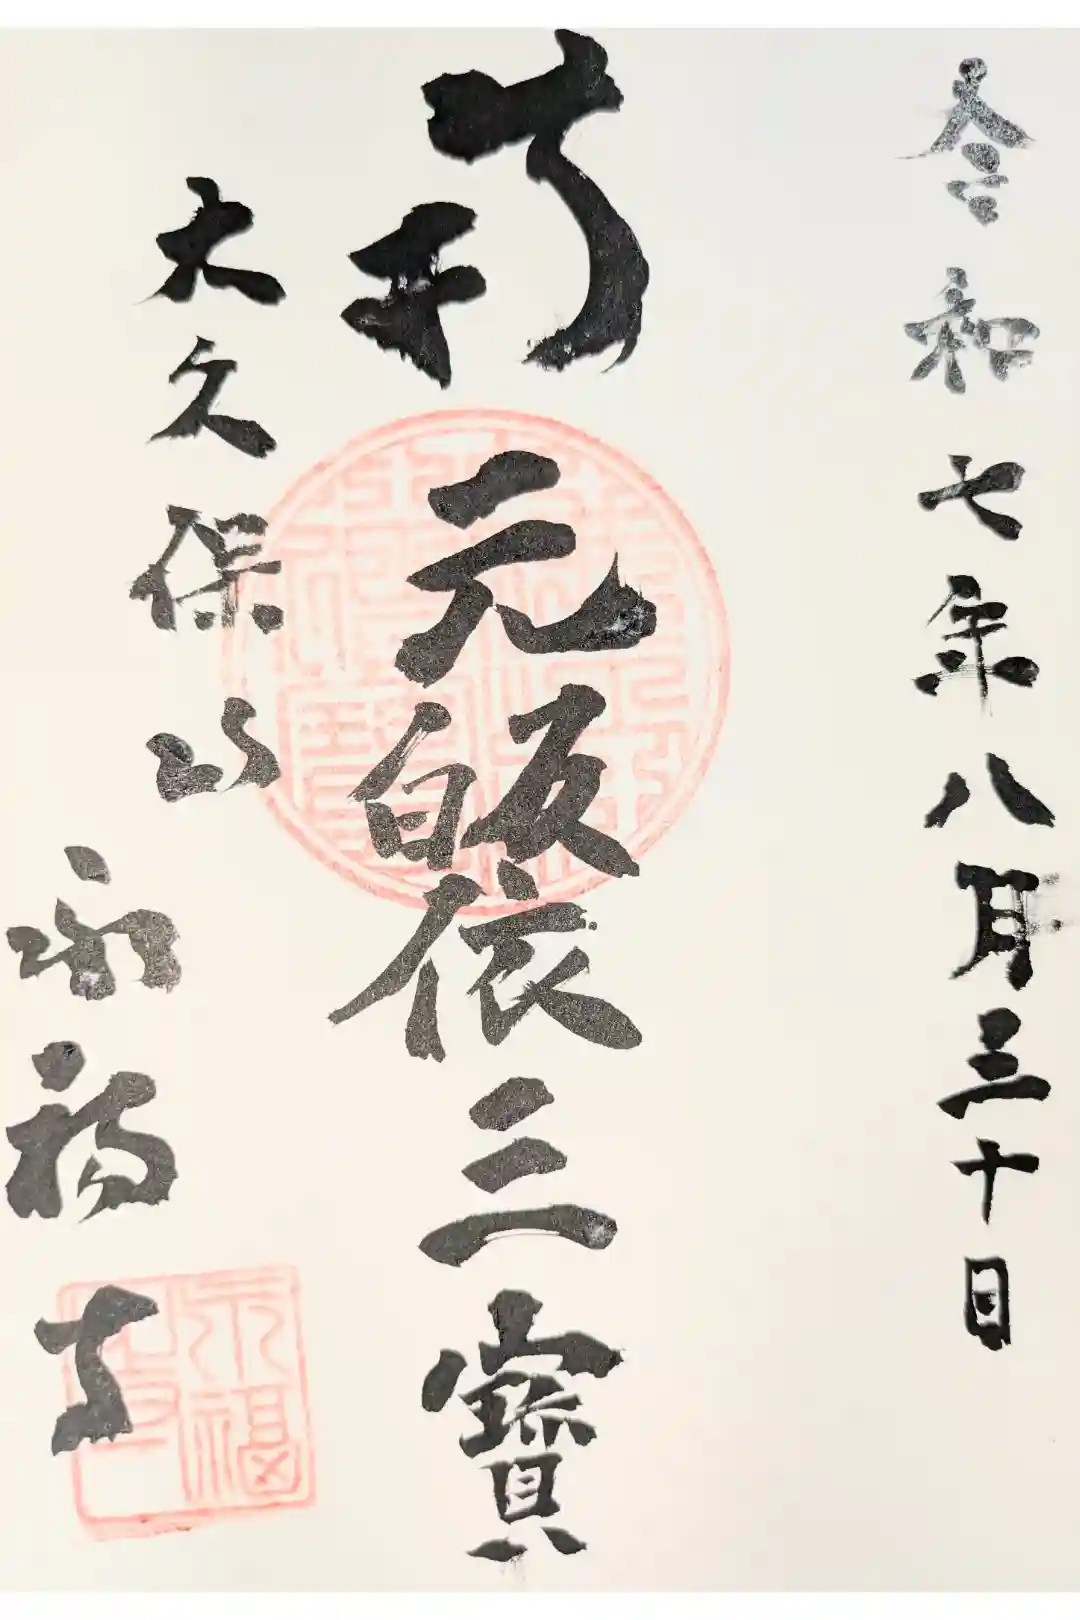 令和七年八月三十日
南无皈依三寶
大久保山
永福寺